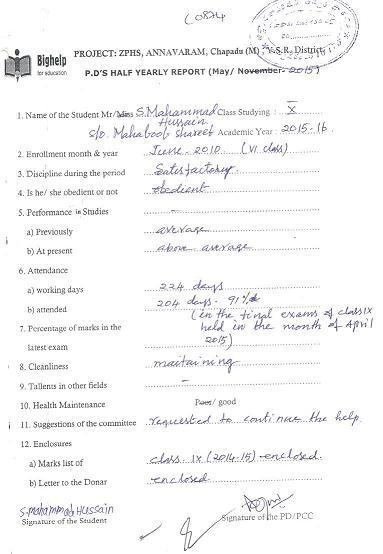 C0824
Bighelp
for education
PROJECT: ZPHS, ANNAVARAM, Chapadu (M) Y.S.R. District
P.D'S HALF YEARLY REPORT (May/ November- 2015)
1. Name of the Student Mr/Miss S.Mahammad Hussain. Class Studying : X
S/o. Mahaboob shareef Academic Year : 2015-16.
2. Enrollment month & year June - 2010 (VI class)
3. Discipline during the period Satisfactory.
4. Is he/ she obedient or not obedient
5. Performance in Studies -
a) Previously average
b) At present above average
6. Attendance
a) working days 224 days
b) attended 204 days. 91%
7. Percentage of marks in the latest exam (in the final exams of class IX held in the month of April 2015)
8. Cleanliness maitaining
9. Tallents in other fields -
10. Health Maintenance Poor/ good
11. Suggestions of the committee requested to continue the help.
12. Enclosures
a) Marks list of class. IX (2014-15) enclosed.
b) Letter to the Donar enclosed
S.mahammad Hussain
Signature of the Student
Signature of the PD/PCC